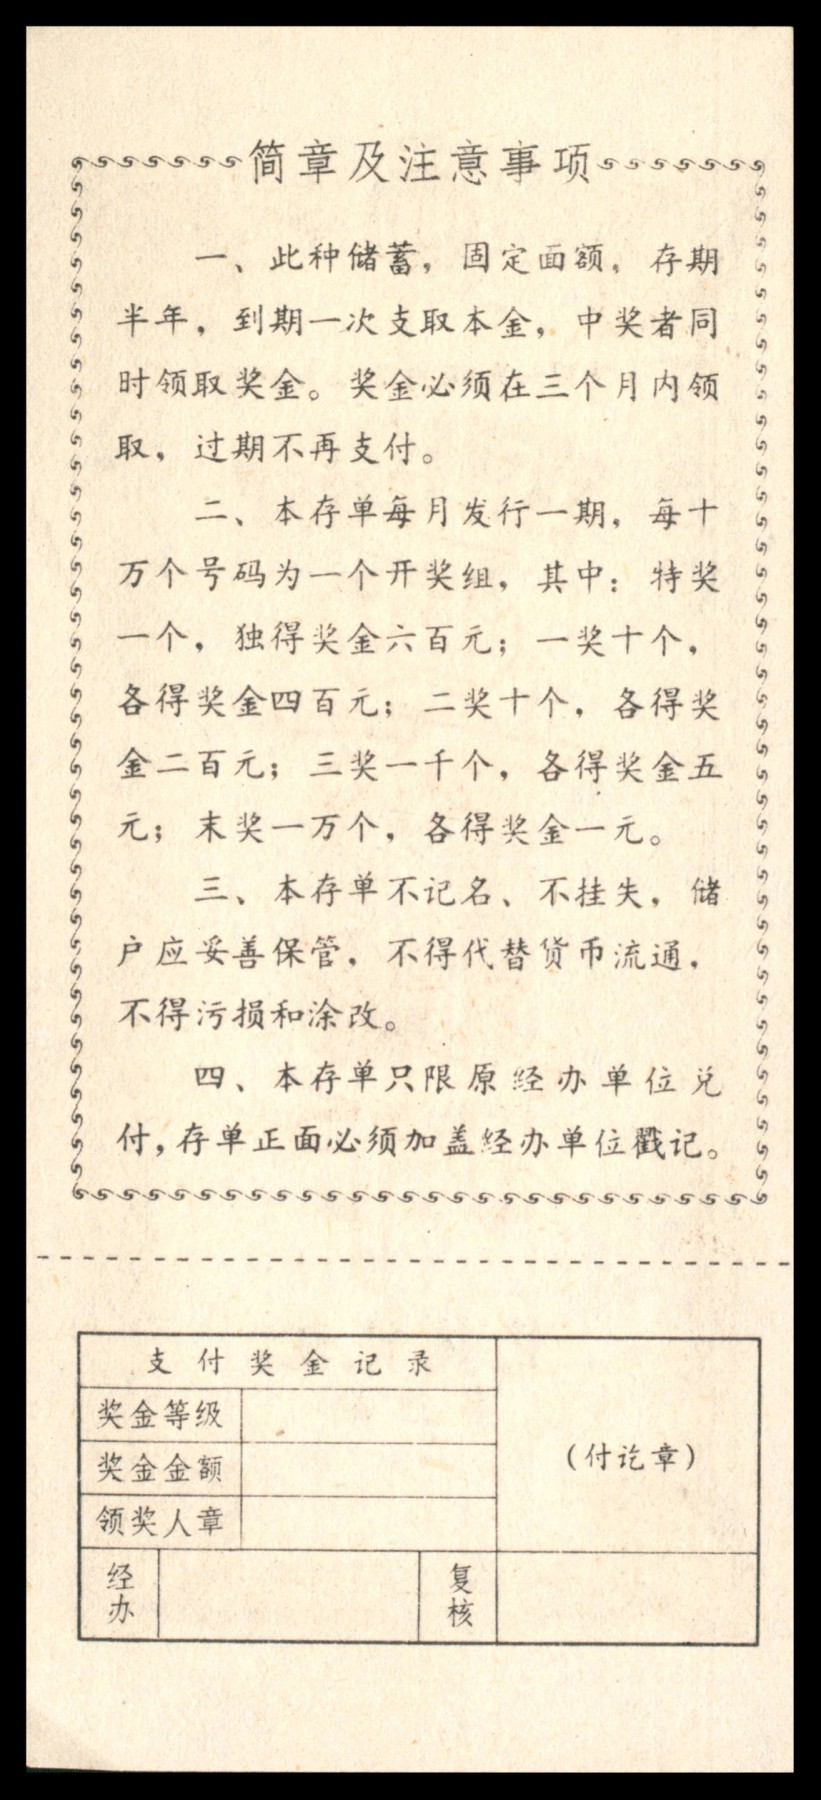 简章及注意事项
一、此种储蓄，固定面额，存期
半年，到期一次支取本金，中奖者同
时领取奖金。奖金必须在三个月内领
取，过期不再支付。
二、本存单每月发行一期，每十
万个号码为一个开奖组，其中：特奖
一个，独得奖金六百元；一奖十个，
各得奖金四百元；二奖十个，各得奖
金二百元；三奖一千个，各得奖金五
元；末奖一万个，各得奖金一元。
三、本存单不记名、不挂失，储
户应妥善保管，不得代替货币流通，
不得污损和涂改。
四、本存单只限原经办单位兑
付，存单正面必须加盖经办单位戳记。
支付奖金记录
奖金等级
奖金金额
领奖人章
（付讫章）
经办
复核